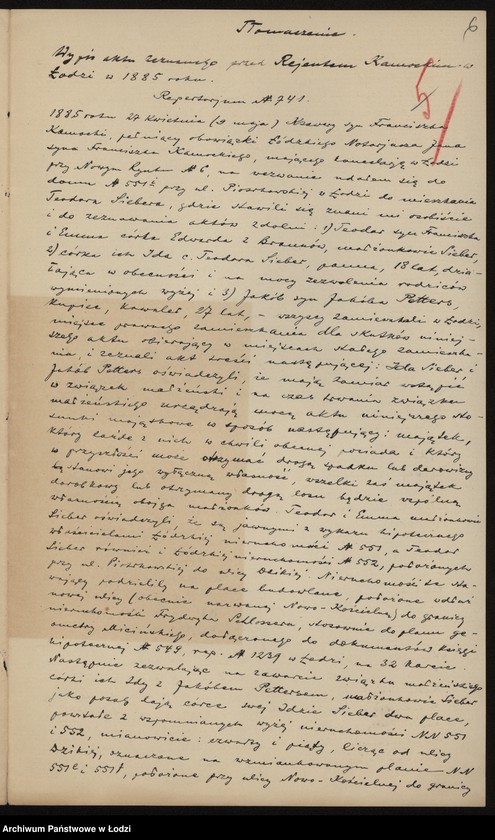 6
Tłomaczenie.
5
Wypis aktu zeznanego przed Rejentem Kamockim w
Łodzi w 1885 roku.
Repertorjum № 741.
1885 roku 27 kwietnia (9 maja) Ksawery syn Franciszka
Kamocki, pełniący obowiązki Łódzkiego Notarjusza Jana
syna Franciszka Kamockiego, mającego kancelarję w Łodzi
przy Nowym Rynku № 6, na wezwanie udałem się do
domu № 551 przy ul. Piotrkowskiej w Łodzi do mieszkania
Teodora Siebera, gdzie stawili się znani mi osobiście
i do zeznawania aktów zdolni: 1) Teodor syn Franciszka
i Emma córka Edwarda z Braunów, małżonkowie Sieber,
2) córka ich Ida c. Teodora Sieber, panna, 18 lat, dzia-
łająca w obecności i na mocy zezwolenia rodziców
wymienionych wyżej i 3) Jakób syn Jakóba Petters,
kupiec, kawaler, 27 lat, – wszyscy zamieszkali w Łodzi,
miejsce prawnego zamieszkania dla skutków niniej-
szego aktu obierający w miejscach stałego zamieszka-
nia, i zeznali akt treści następującej: Ida Sieber i
Jakób Petters oświadczyli, że mają zamiar wstąpić
w związek małżeński i na czas trwania związku
małżeńskiego urządzają mocą aktu niniejszego sto-
sunki majątkowe w sposób następujący: majątek,
który każde z nich w chwili obecnej posiada i który
w przyszłości może otrzymać drogą spadku lub darowizny
stanowi jego wyłączną własność, wszelki zaś majątek
dorobkowy lub otrzymany drogą losu będzie wspólną
własnością obojga małżonków. Teodor i Emma małżonkowie
Sieber oświadczyli, że są jawnymi z wykazu hipotecznego
właścicielami Łódzkiej nieruchomości № 551, a Teodor
Sieber również i Łódzkiej nieruchomości № 552, położonych
przy ul. Piotrkowskiej do ulicy Dzikiej. Nieruchomości te sta-
wający podzielili na place budowlane, położone wzdłuż
nowej ulicy (obecnie nazwanej Nowo-Kościelną) do granicy
nieruchomości Fryderyka Schlossera, stosownie do planu ge-
ometry Micińskiego, dołączonego do dokumentów księgi
hipotecznej № 549, rep. № 1239 w Łodzi, na 32 karcie.
Następnie zezwalając na zawarcie związku małżeńskiego
córki ich Idy z Jakóbem Pettersem, małżonkowie Sieber
jako posag dają córce swej Idzie Sieber dwa place,
powstałe z wspomnianych wyżej nieruchomości NN 551
i 552, mianowicie: czwarty i piąty, licząc od ulicy
Dzikiej, oznaczone na wzmiankowanym planie NN
551 i 551, położone przy ulicy Nowo-Kościelnej do granicy
Archiwum Państwowe w Łodzi